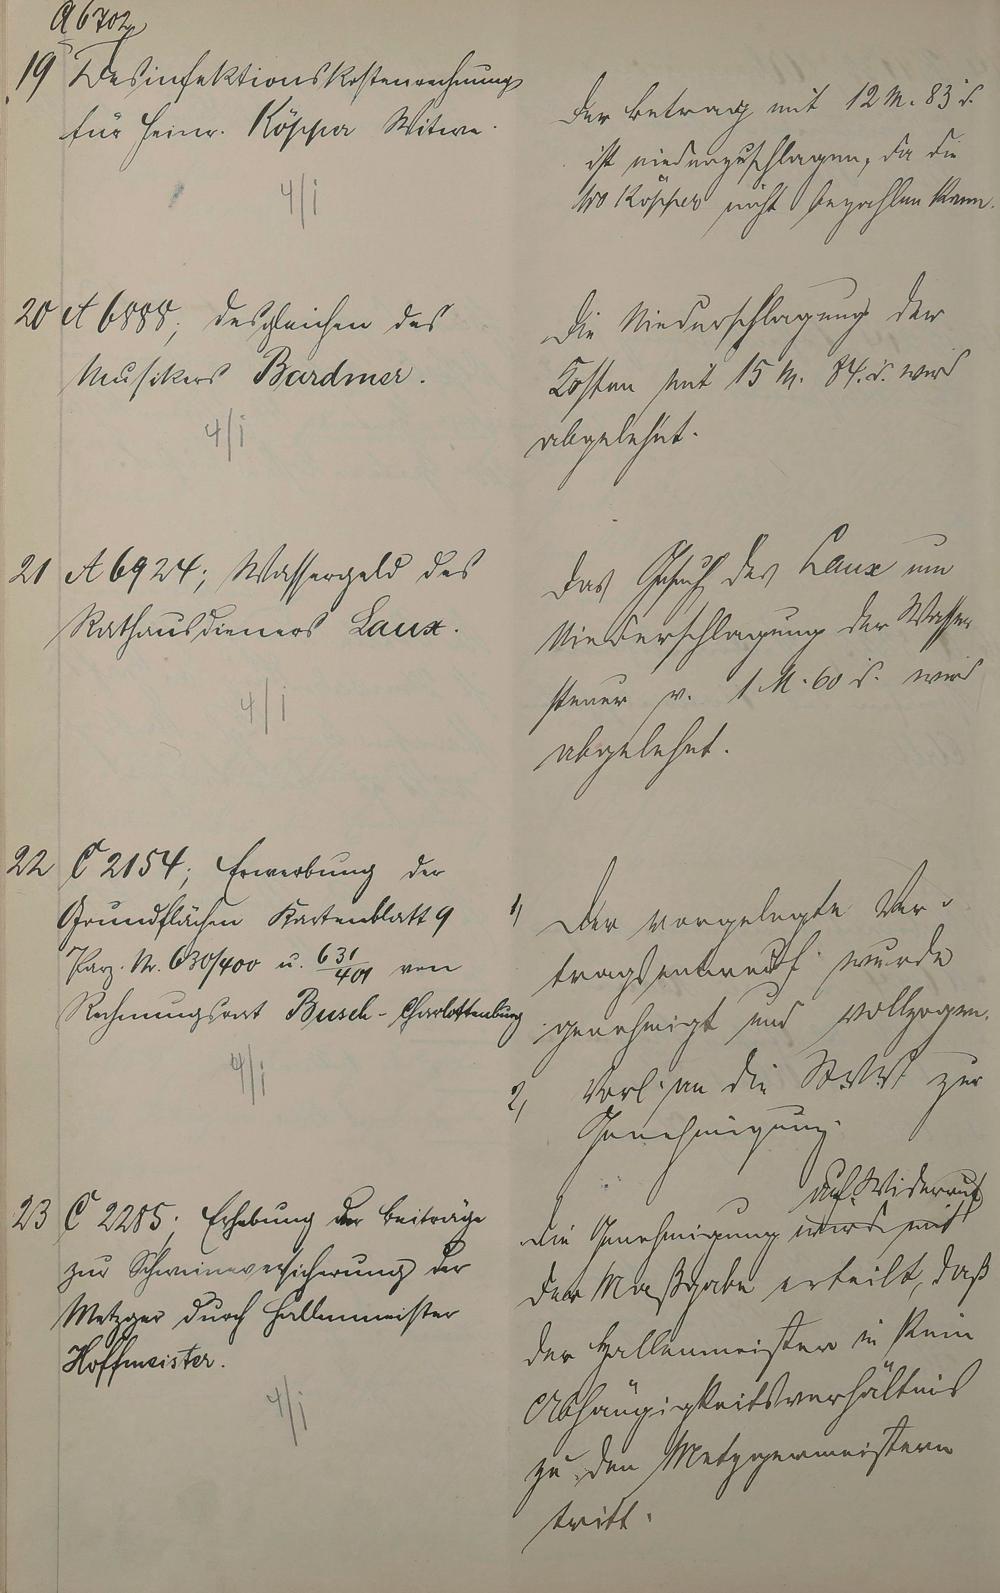 A 6702
19 Desinfektionskostenrechnung
für Heinr. Köpper Witwe.
4/I
Der Betrag mit 12 M. 83 d.
ist niederzuschlagen, da die
Ww Köpper nicht bezahlen kann.
20 A 6888; desgleichen des
Musikers Bardmer.
4/I
Die Niederschlagung der
Kosten mit 15 M. 84. d. wird
abgelehnt.
21 A 6924; Wassergeld des
Rathausdieners Laux.
4/I
Das Gesuch des Laux um
Niederschlagung der Wasser
steuer v. 1 M. 60 d. wird
abgelehnt.
22 C 2154; Erwerbung der
Grundflächen Kartenblatt 9
Parz. Nr. 630/400 u. 631/401 von
Rechnungsrat Busch - Charlottenburg
4/I
1, Der vorgelegte Ver-
tragsentwurf wurde
genehmigt und vollzogen.
2, Vorl. an die StVV zur
Genehmigung.
23 C 2285; Erhebung der Beiträge
zur Schweineversicherung der
Metzger durch Hallenmeister
Hoffmeister.
4/I
auf Widerruf
Die Genehmigung wird mit
der Maßgabe erteilt, daß
der Hallenmeister in kein
Abhängigkeitsverhältnis
zu den Metzgermeistern
tritt.